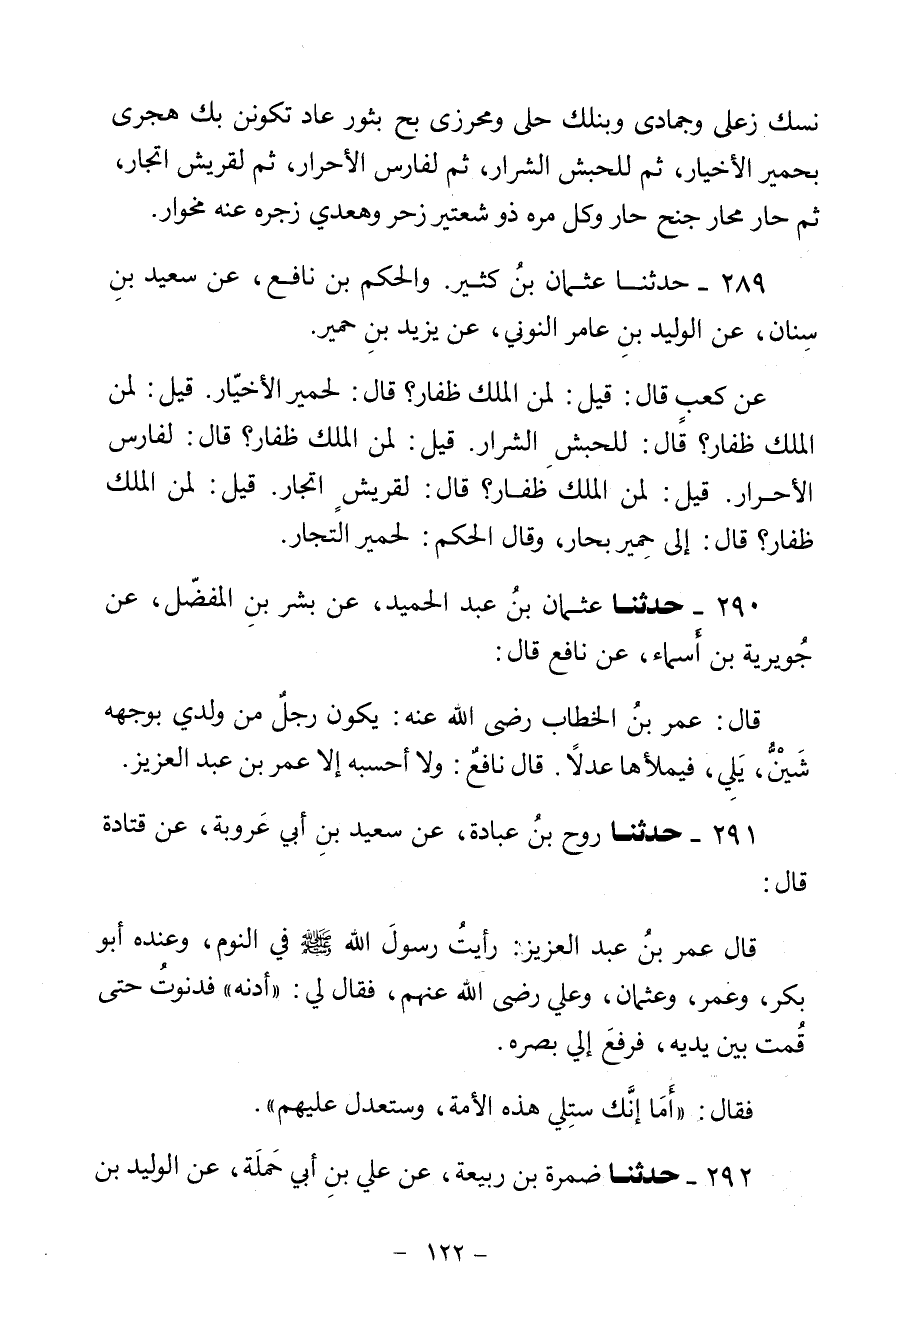 نسك زعلى وجمادى وبنلك حلى ومحرزى بح بثور عاد تكونن بك هجرى
بحمير الأخيار، ثم للحبش الشرار، ثم لفارس الأحرار، ثم لقريش اتجار،
ثم حار محار جنح حار وكل مره ذو شعتير زحر وهعدي زجره عنه مخوار.
٢٨٩ ـ حدثنـا عثمان بنُ كثير. والحكم بن نافع، عن سعيد بنِ
سنان، عن الوليد بنِ عامر النوني، عن يزيد بنِ حمير.
عن كعبٍ قال: قيل: لمن الملك ظفار؟ قال: لحمير الأخيّار. قيل: لمن
الملك ظفار؟ قال: للحبشِ الشرار. قيل: لمن الملك ظفار؟ قال: لفارس
الأحرار. قيل: لمن الملك ظفار؟ قال: لقريشٍ اتجار. قيل: لمن الملك
ظفار؟ قال: إلى حِمير بحار، وقال الحكم: لحمير التجار.
٢٩٠ ـ حدثنا عثمان بنُ عبد الحميد، عن بشر بنِ المفضّل، عن
جُويرية بن أَسماء، عن نافع قال:
قال: عمر بنُ الخطاب رضى الله عنه: يكون رجلٌ من ولدي بوجهه
شَيْنٌ، يَلِي، فيملأها عدلاً. قال نافعٌ: ولا أحسبه إلا عمر بن عبد العزيز.
٢٩١ ـ حدثنا روح بنُ عبادة، عن سعيد بنِ أبي عَروبة، عن قتادة
قال:
قال عمر بنُ عبد العزيز: رأيتُ رسولَ الله ﷺ في النوم، وعنده أبو
بكر، وعمر، وعثمان، وعلي رضى الله عنهم، فقال لي: «أدنه» فدنوتُ حتى
قُمت بين يديه، فرفعَ إلي بصره.
فقال: «أَمَا إنَّك ستلِي هذه الأمة، وستعدل عليهم».
٢٩٢ ـ حدثنا ضمرة بن ربيعة، عن علي بنِ أبي حَملَة، عن الوليد بن
ـ ١٢٢ ـ